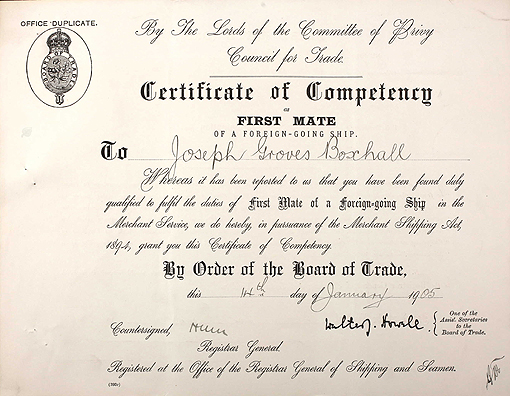 OFFICE DUPLICATE.
BOARD OF TRADE
By The Lords of the Committee of Privy
Council for Trade.
Certificate of Competency
as
FIRST MATE
OF A FOREIGN-GOING SHIP.
To Joseph Groves Boxhall
Whereas it has been reported to us that you have been found duly
qualified to fulfil the duties of First Mate of a Foreign-going Ship in the
Merchant Service, we do hereby, in pursuance of the Merchant Shipping Act,
1894, grant you this Certificate of Competency.
By Order of the Board of Trade,
this 14th day of January 1905
Countersigned,
Walter J. Howell
One of the
Assist. Secretaries
to the
Board of Trade.
Registrar General.
Registered at the Office of the Registrar General of Shipping and Seamen.